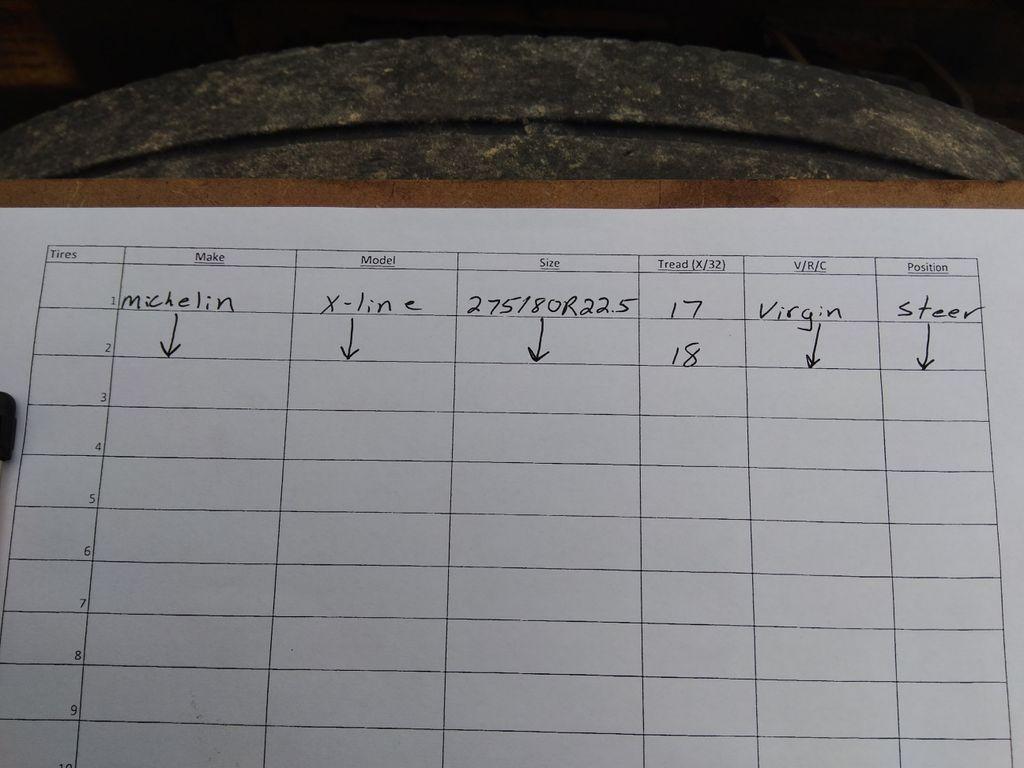 Tires Make Model Size Tread (X/32) V/R/C Position
1 Michelin X-line 275/80R22.5 17 Virgin Steer
2 ↓ ↓ ↓ 18 ↓ ↓
3
4
5
6
7
8
9
10